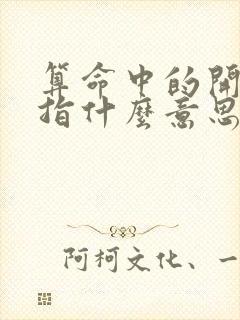 算命中的開
指什麼意思
阿柯文化、一